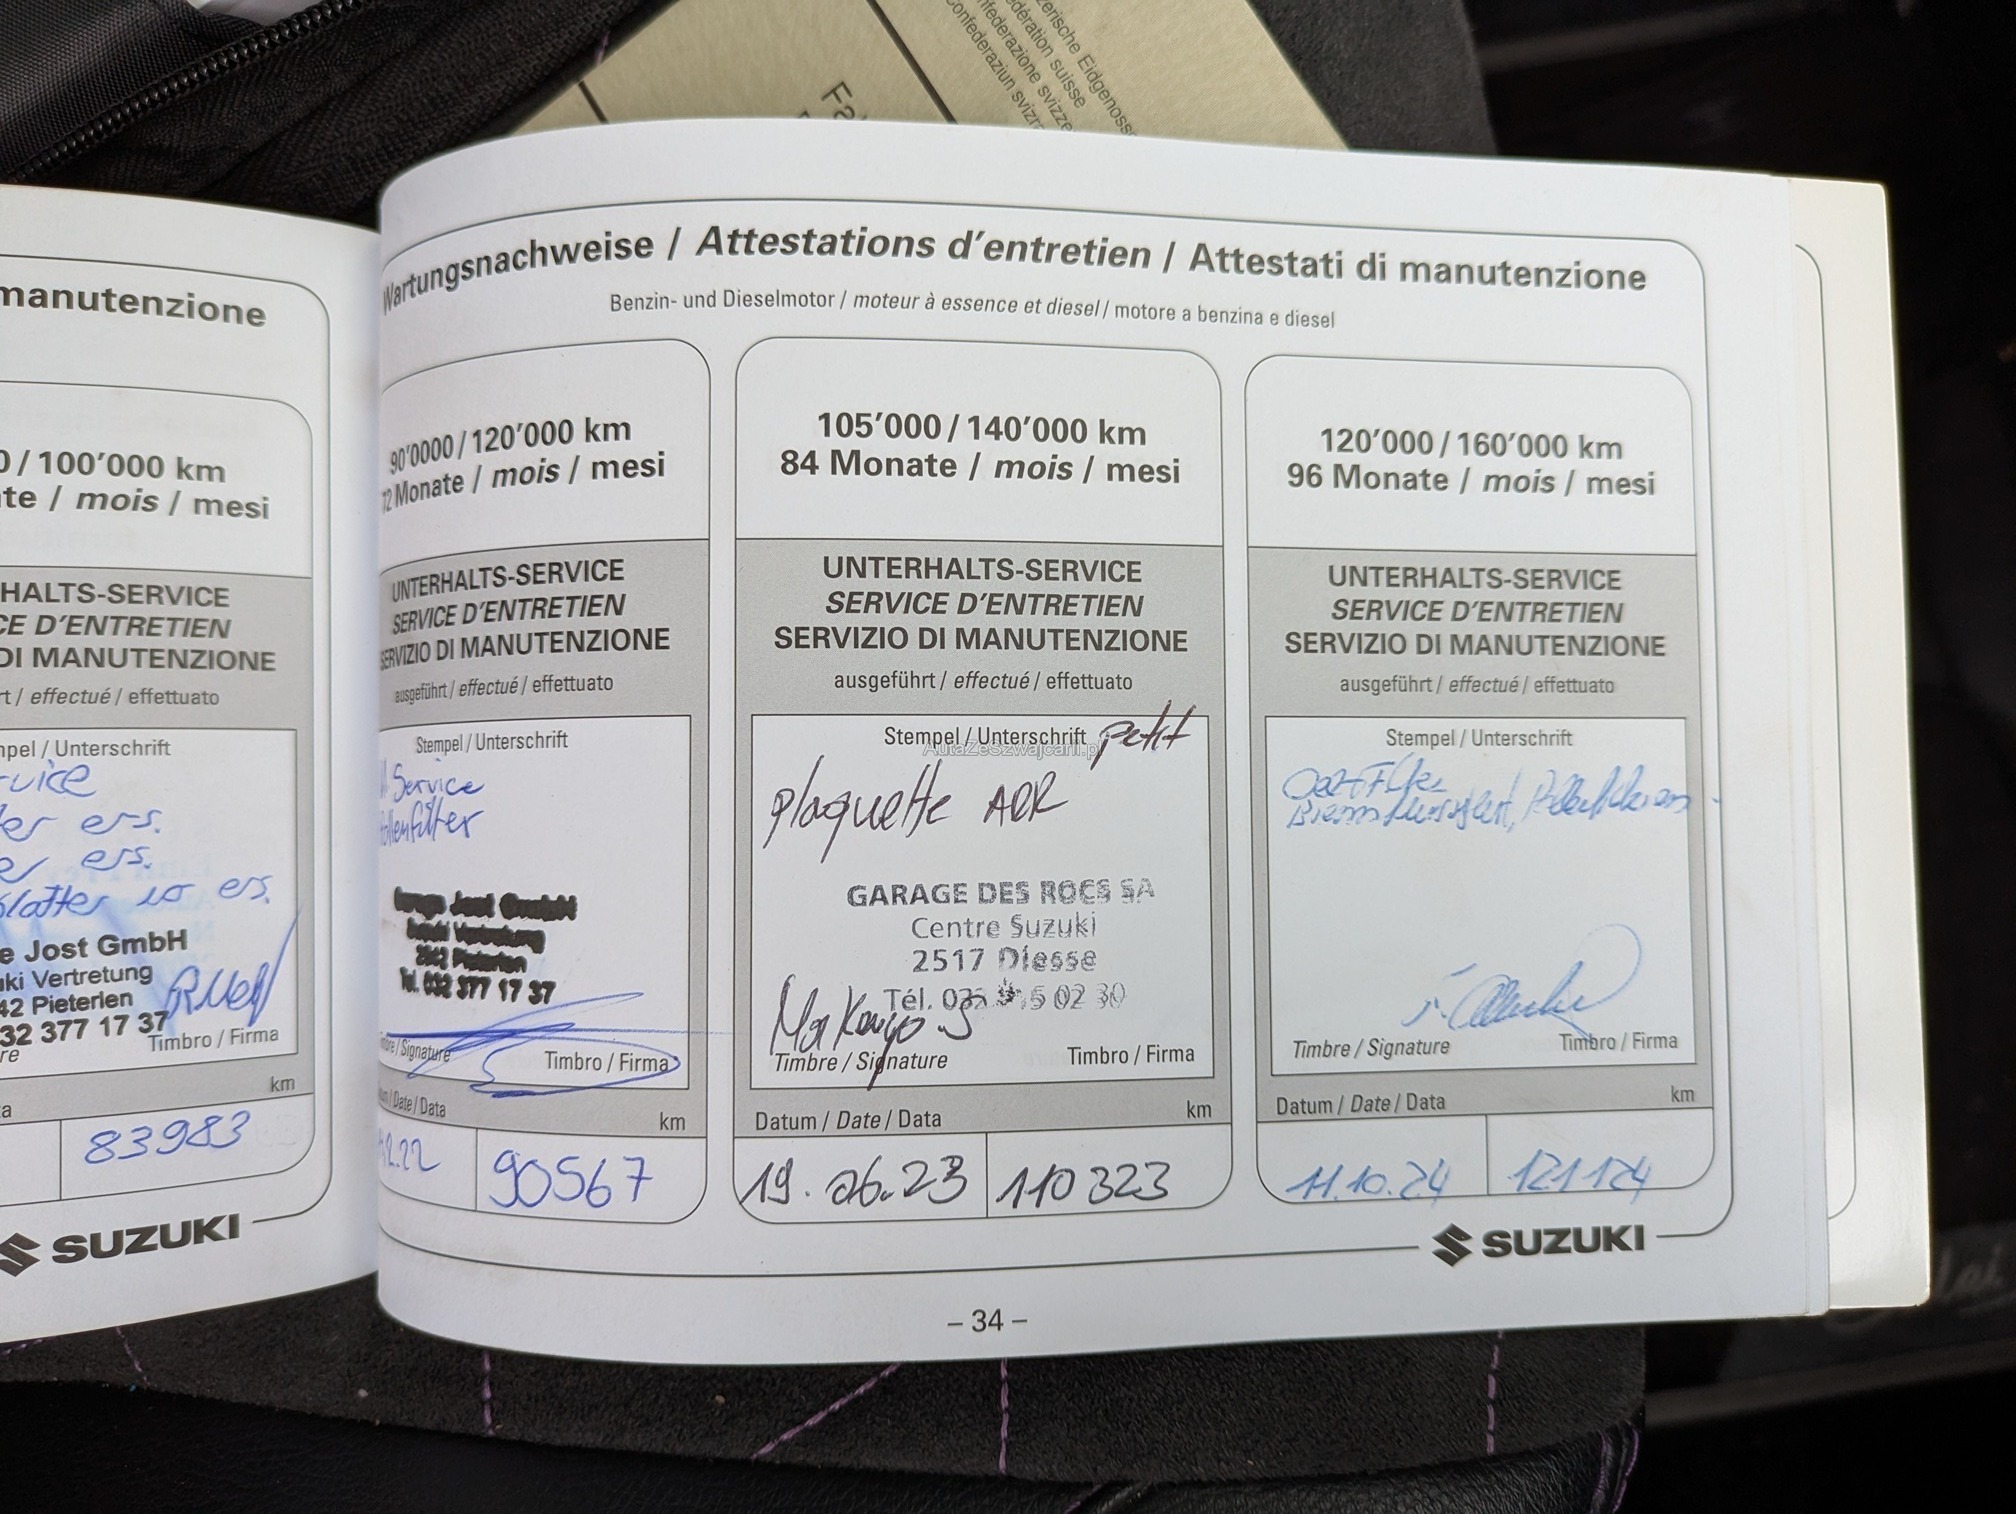 zerische Eidgenoss
dération suisse
nfederazione svizze
onfederaziun svizr
Fa
manutenzione
0 / 100'000 km
te / mois / mesi
HALTS-SERVICE
CE D'ENTRETIEN
DI MANUTENZIONE
rt / effectué / effettuato
mpel / Unterschrift
rvice
er ers.
er ers.
blätter ers.
e Jost GmbH
uki Vertretung
42 Pieterlen
32 377 17 37
re
Timbro / Firma
km
ta
83983
SUZUKI
Wartungsnachweise / Attestations d'entretien / Attestati di manutenzione
Benzin- und Dieselmotor / moteur à essence et diesel / motore a benzina e diesel
90'0000 / 120'000 km
72 Monate / mois / mesi
UNTERHALTS-SERVICE
SERVICE D'ENTRETIEN
SERVIZIO DI MANUTENZIONE
ausgeführt / effectué / effettuato
Stempel / Unterschrift
Service
Pollenfilter
Garage Jost GmbH
Suzuki Vertretung
2542 Pieterlen
Tel. 032 377 17 37
Timbre / Signature
Timbro / Firma
Datum / Date / Data
km
12.22
90567
105'000 / 140'000 km
84 Monate / mois / mesi
UNTERHALTS-SERVICE
SERVICE D'ENTRETIEN
SERVIZIO DI MANUTENZIONE
ausgeführt / effectué / effettuato
Stempel / Unterschrift
petit
AutaZeSzwajcarii.pl
plaquette ARR
GARAGE DES ROCS SA
Centre Suzuki
2517 Diesse
Tél. 032 315 02 30
Timbre / Signature
Timbro / Firma
Datum / Date / Data
km
19.06.23
110323
120'000 / 160'000 km
96 Monate / mois / mesi
UNTERHALTS-SERVICE
SERVICE D'ENTRETIEN
SERVIZIO DI MANUTENZIONE
ausgeführt / effectué / effettuato
Stempel / Unterschrift
Timbre / Signature
Timbro / Firma
Datum / Date / Data
km
11.10.24
121124
SUZUKI
– 34 –